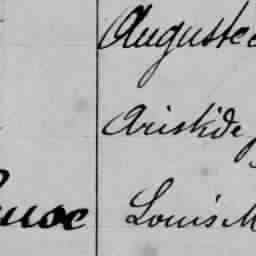 Auguste
Aristide
Louis M